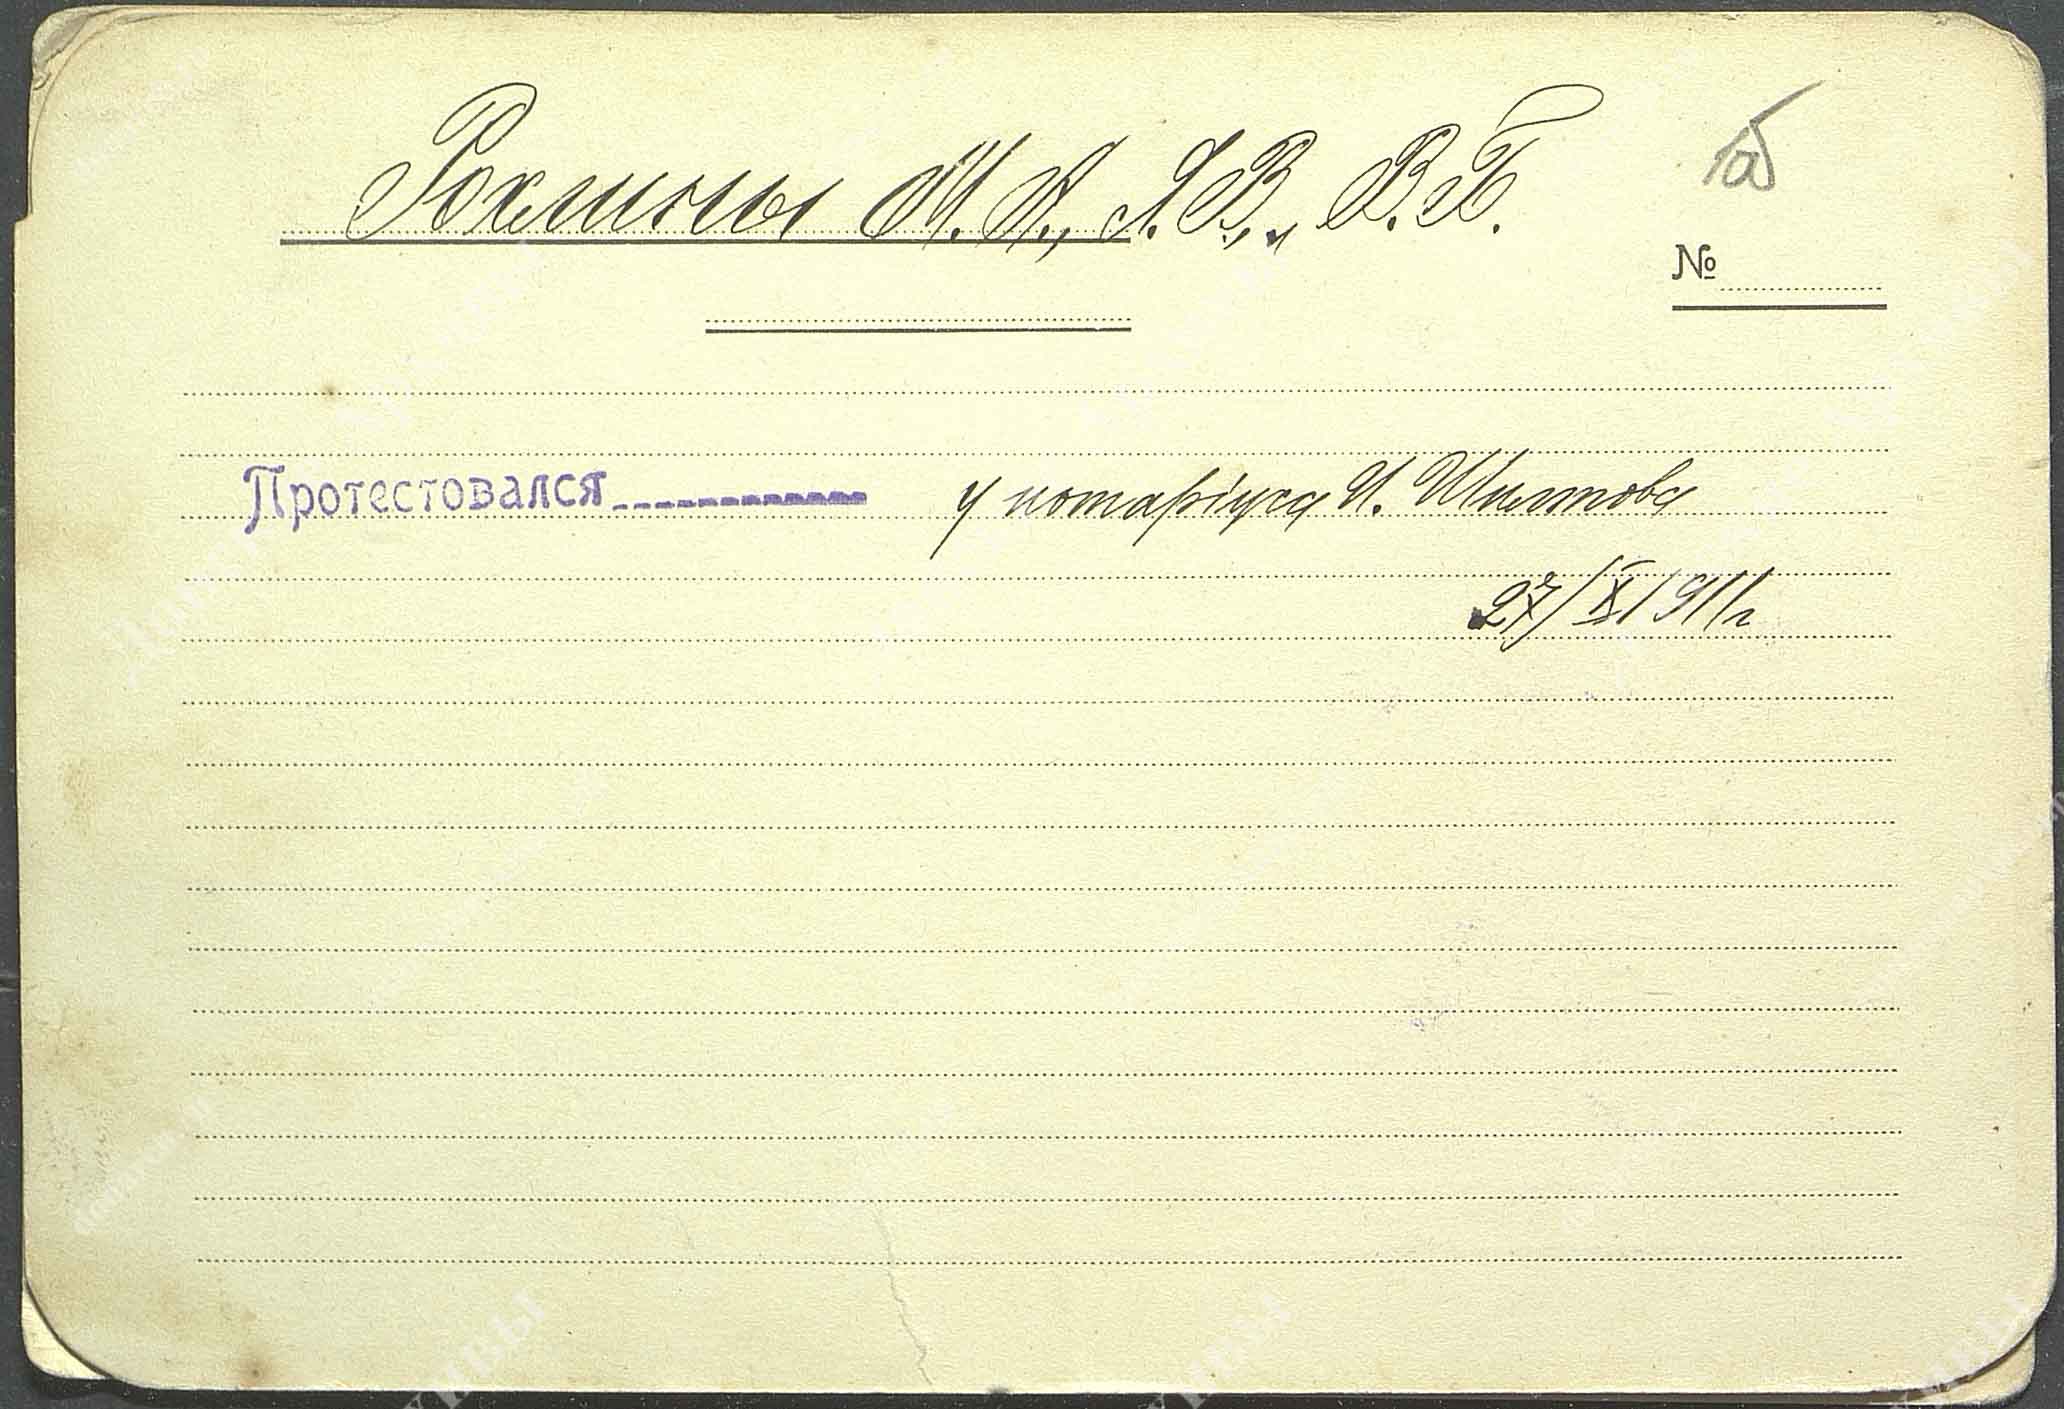 Рохлины М. А., Я. В., В. Б.
№
Протестовался у нотаріуса И. Шилтова
27/IX 1911 г